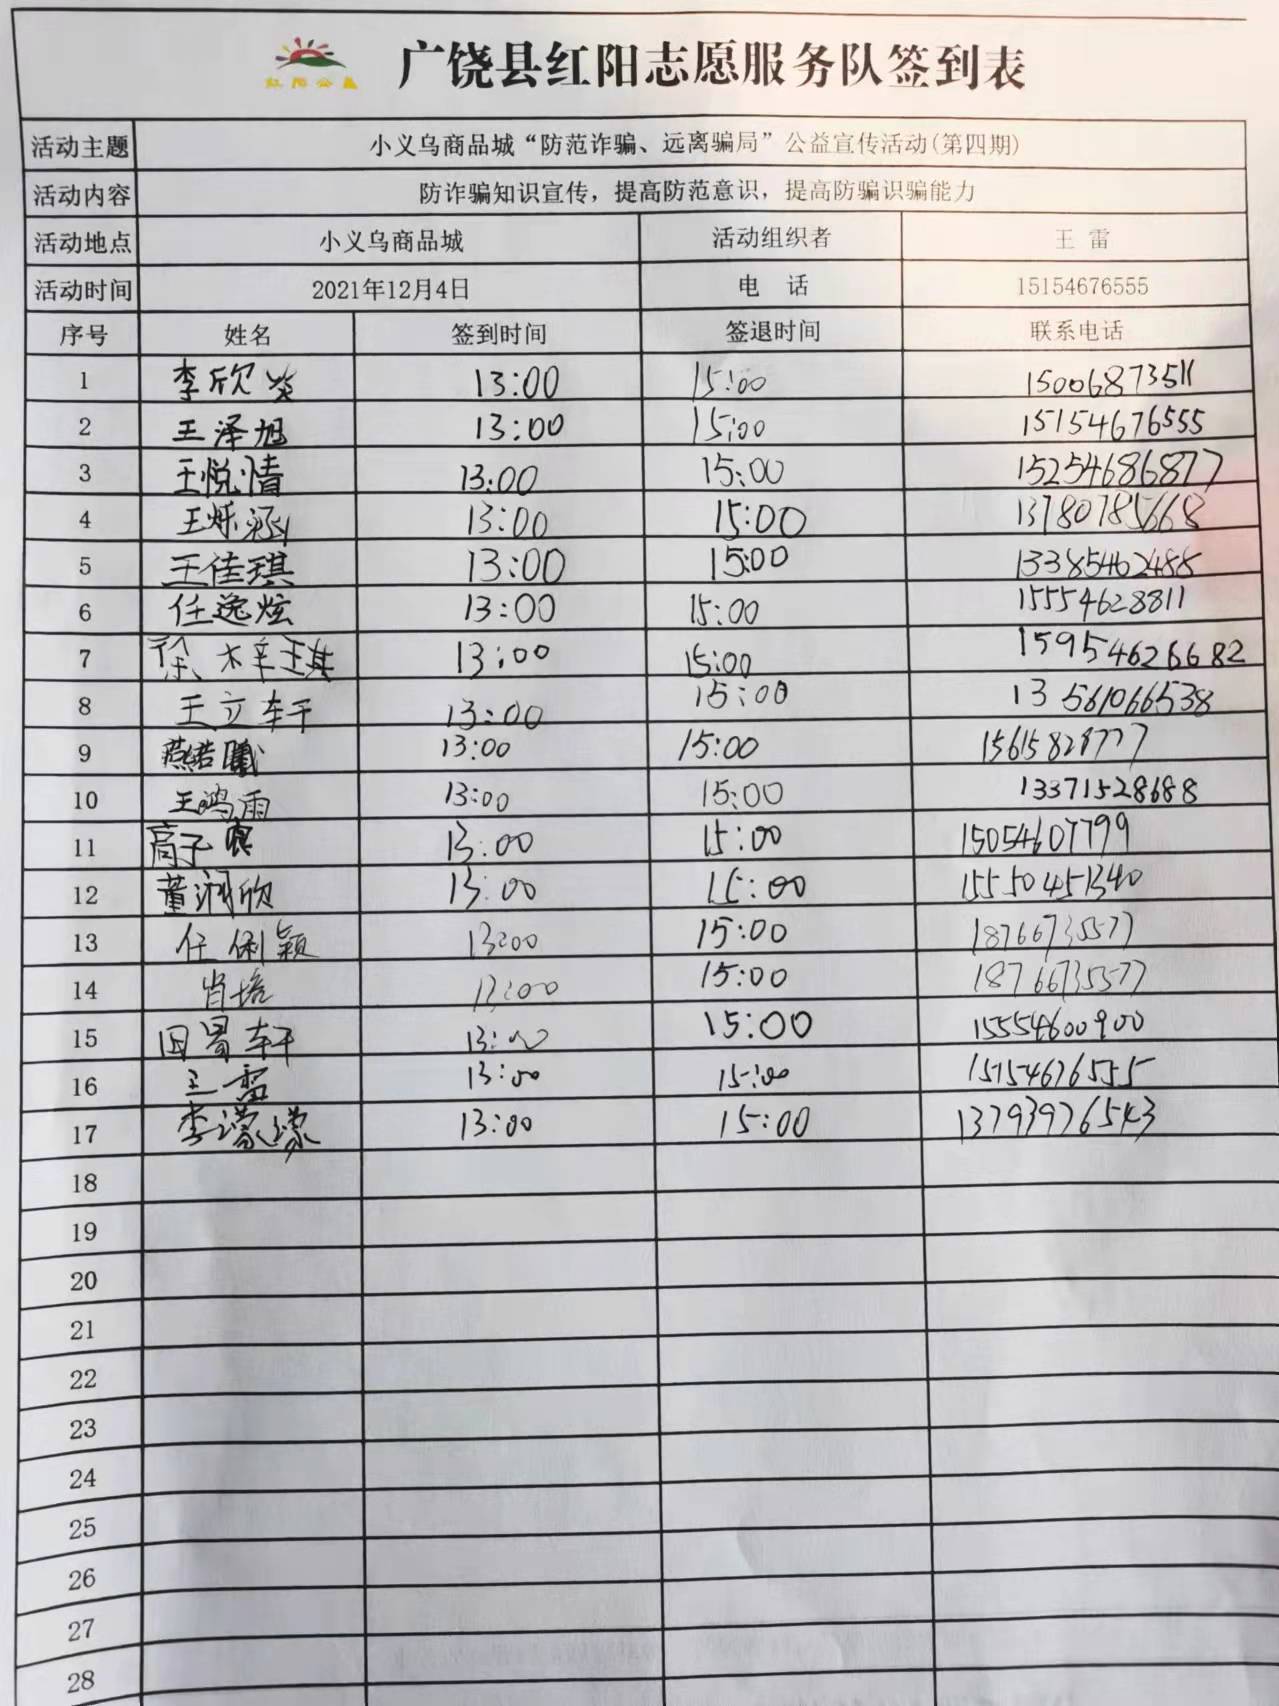 红阳公益
广饶县红阳志愿服务队签到表
活动主题 小义乌商品城“防范诈骗、远离骗局”公益宣传活动(第四期)
活动内容 防诈骗知识宣传，提高防范意识，提高防骗识骗能力
活动地点 小义乌商品城 活动组织者 王 雷
活动时间 2021年12月4日 电 话 15154676555
序号 姓名 签到时间 签退时间 联系电话
1 李欣 13:00 15:00 15006873511
2 王泽旭 13:00 15:00 15154676555
3 王悦情 13:00 15:00 15254686877
4 王烁涵 13:00 15:00 13780785668
5 王佳琪 13:00 15:00 13385462488
6 任逸炫 13:00 15:00 15554628811
7 徐梓琪 13:00 15:00 15954626682
8 王立轩 13:00 15:00 13561066538
9 13:00 15:00 15615828777
10 王鸿雨 13:00 15:00 13371528688
11 高子 13:00 15:00 15054607799
12 董润欣 13:00 15:00 15550451340
13 任俐颖 13:00 15:00 18766735577
14 肖培 13:00 15:00 18766735577
15 田冒轩 13:00 15:00 15554600900
16 王雷 13:00 15:00 15154676555
17 李濛濛 13:00 15:00 13793976543
18
19
20
21
22
23
24
25
26
27
28